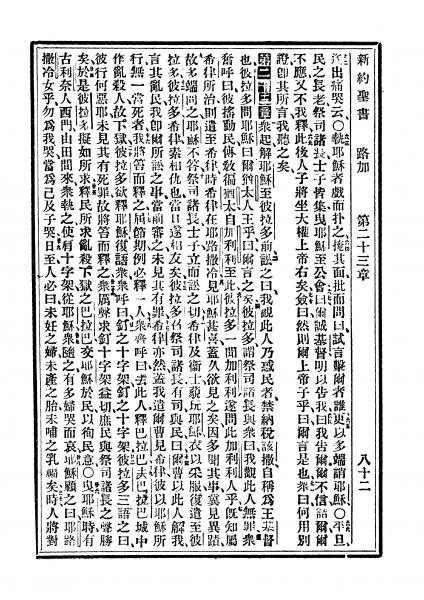 新約聖書　路加　第二十三章　八十二
遂出痛哭云○執耶穌者戲而扑之、掩其面、批而問曰、試言擊爾者誰、更以多端誚耶穌○平旦、
民之長老祭司諸長士子皆集、曳耶穌至公會、曰、爾誠基督、明以告我、曰、我告爾、爾不信、詰爾、爾
不應、又不我釋、此後人子將坐大權上帝右矣、僉曰、然則爾上帝子乎、曰、爾言是也、衆曰、何用別
證、卽其所言、我聽之矣、
第二十三章 衆起、解耶穌至彼拉多前、訟之曰、我觀此人乃惑民者、禁納稅該撒、自稱爲王基督
也、彼拉多問耶穌曰、爾猶太人王乎、曰、爾言之矣、彼拉多謂祭司諸長與衆曰、我觀此人無罪、衆
奮呼曰、彼搖動民、傳敎徧猶太、自加利利至此、彼拉多一聞加利利、遂問此加利利人乎、旣知屬
希律所治、則遣至希律、時希律在耶路撒冷、見耶穌甚喜、蓋久欲見之矣、因多聞其事、冀見異蹟、
故多端問之、耶穌不答、祭司諸長士子立而訟之切、希律及衞士藐玩耶穌、衣以采服、復遣至彼
拉多、彼拉多希律素相仇也、當日遂相友矣、彼拉多召祭司諸長有司與民、曰、爾曹以此人解我、
言其亂民、我卽爾所訟之事、當前審之、未見其有罪、希律亦然、蓋我遣爾曹見希律、彼以耶穌所
行、無一當死者、我將笞而釋之、屆節期、例必釋一人、衆齊呼曰、去此人、釋巴拉巴、夫巴拉巴城中
作亂殺人、故下獄、彼拉多欲釋耶穌、復語衆、衆呼曰、釘之十字架、釘之十字架、彼拉多三語之曰、
彼行何惡耶、未見其有死罪、故將笞而釋之、衆厲聲求釘十字架益切、庶民與祭司諸長之聲勝
矣、於是彼拉多擬如所求、釋民所求亂殺下獄之巴拉巴、交耶穌於民、以徇民意○曳耶穌時、有
古利奈人西門、由田間來、衆執之、使肩十字架從耶穌、衆隨之、有多婦哭而哀、耶穌顧之曰、耶路
撒冷女乎、勿爲我哭、當爲己及子哭、日至、人必曰、未妊之婦、未產之胎、未哺之乳、福矣、時人將對